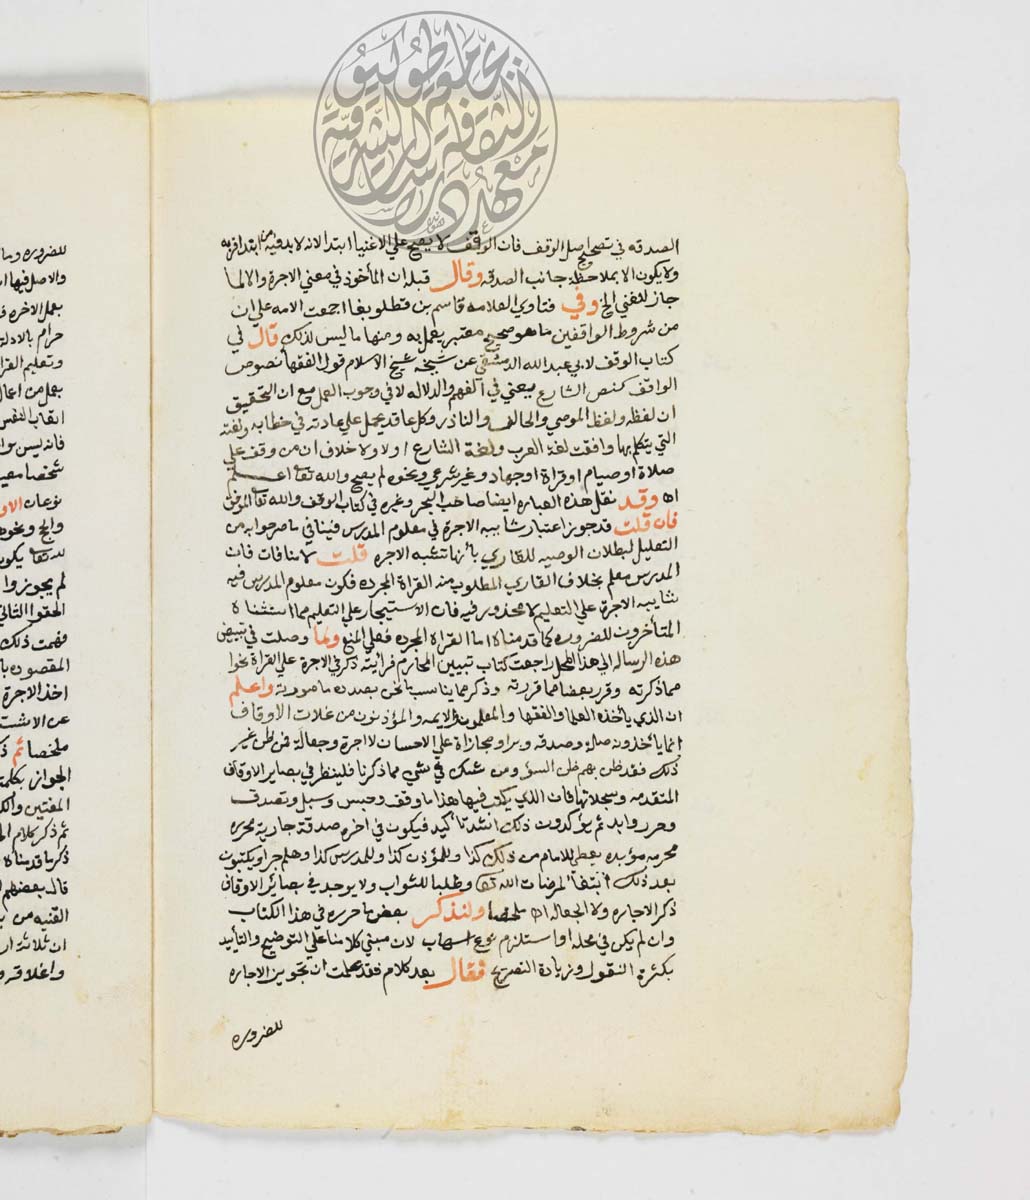 معهد الثقافة والدراسات الشرقية جامعة طوكيو
الصدقه في تصحيح اصل الوقف فان الوقف لا يصح علي الاغنيا ابتدا لانه لا بد فيه من ابتدا قربه
ولا يكون الا بملاحظة جانب الصدقه وقال قبله ان المأخوذ في معني الاجرة والا لما
جاز للغني الخ وفي فتاوي العلامه قاسم بن قطلوبغا اجمعت الامه علي ان
من شروط الواقفين ما هو صحيح معتبر يعمل به ومنها ما ليس لذلك قال في
كتاب الوقف لابي عبد الله الدمشقي عن شيخه شيخ الاسلام قول الفقها نصوص
الواقف كنص الشارع يعني في الفهم والدلاله لا في وجوب العمل مع ان التحقيق
ان لفظه ولفظ الموصي والحالف والناذر وكل عاقد يحمل علي عادته في خطابه ولغته
التي يتكلم بها وافقت لغة العرب ولغة الشارع او لا ولا خلاف ان من وقف علي
صلاة او صيام او قراة او جهاد وغير شرعي ونحوه لم يصح والله تعالى اعلم
اه وقد نقل هذه العباره ايضا صاحب البحر وغيره في كتاب الوقف والله تعالى الموفق
فان قلت قد جوز اعتبار شايبه الاجرة في معلوم المدرس فينافي ما مر جوابه من
التعليل لبطلان الوصيه للقاري بأنها تشبه الاجره قلت لا منافات فان
المدرس معلم بخلاف القاري المطلوب منه القراة المجرده فكون معلوم المدرس فيه
شايبه الاجرة علي التعليم لا محذور فيه فان الاستيجار علي التعليم مما استثناه
المتأخرون للضروره كما قدمناه اما القراة المجرده فعلي المنع ولما وصلت في تبييض
هذه الرساله الي هذا المحل راجعت كتاب تبيين المحارم فرايته ذكر في الاجرة علي القراة نحوا
مما ذكرته وقرر بعضا مما قررته وذكر مما يناسب ما نحن بصدده ما صورته واعلم
ان الذي يأخذه العلما والفقها والمعلمون والايمه والمؤذنون من غلات الاوقاف
انما يأخذون صلة وصدقه وبرا ومجازاة علي الاحسان لا اجرة وجعالة فمن ظن غير
ذلك فقد ظن بهم ظن السؤ ومن شك في شي مما ذكرنا فلينظر في بصاير الاوقاف
المتقدمه وسجلاتها فان الذي يكتب فيها هذا ما وقف وحبس وسبل وتصدق
وحرر وابد ثم يؤكدون ذلك اشد تأكيد فيكون في اخره صدقة جارية محرره
محرمه مؤبده يعطي للامام من ذلك كذا وللمؤذن كذا وللمدرس كذا وهلم جرا ويكتبون
بعد ذلك ابتغأ لمرضات الله تعالى وطلبا للثواب ولا يوجد في بصائر الاوقاف
ذكر الاجاره ولا الجعاله اه ملخصا ولنذكر بعض ما حرره في هذا الكتاب
وان لم يكن في محله او استلزم نوع اسهاب لان مبني كلامنا علي التوضيح والتأييد
بكثرة النقول وزيادة التصريح فقال بعد كلام فقد علمت ان تجويز الاجاره
للضروره
للضروره وما
والاصل فيها ا
بعمل الاخره ف
حرام بالادلة
وتعليم القرا
بعمل من اعمال
اتعاب النفس
فانه ليس
شخصا معين
نوعان الاو
والحج ونحوه
لله تعالى يكون
لم يجوزوا
الحقوا الثاني
فهمت ذلك
المقصوده با
اخذ الاجرة
عن الاشت
ملخصا ثم ذ
الجواز بكلمة
المفتين والك
ثم ذكر كلام ال
ذكر ما قدمناه
قال بعضهم ا
القنيه من
ان ثلاثة ار
واغلاقه و